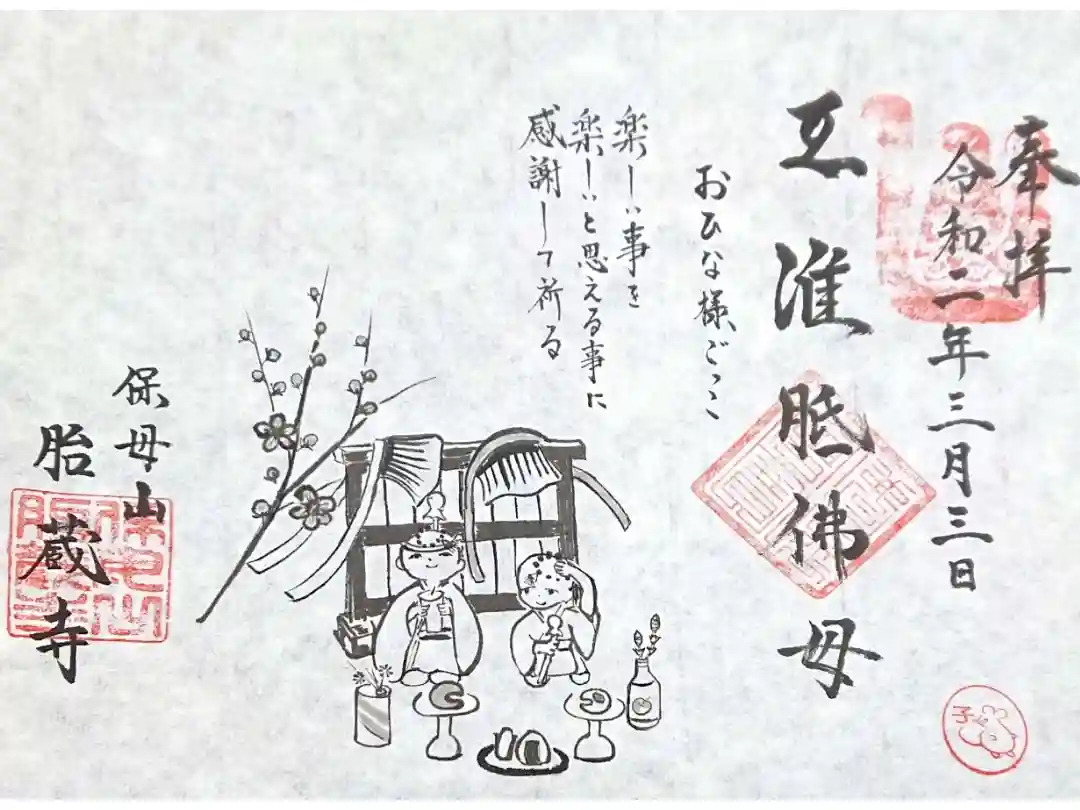 奉拝
令和二年三月三日
准胝佛母
おひな様ごっこ
楽しい事を
楽しいと思える事に
感謝して祈る
保母山
胎蔵寺
子